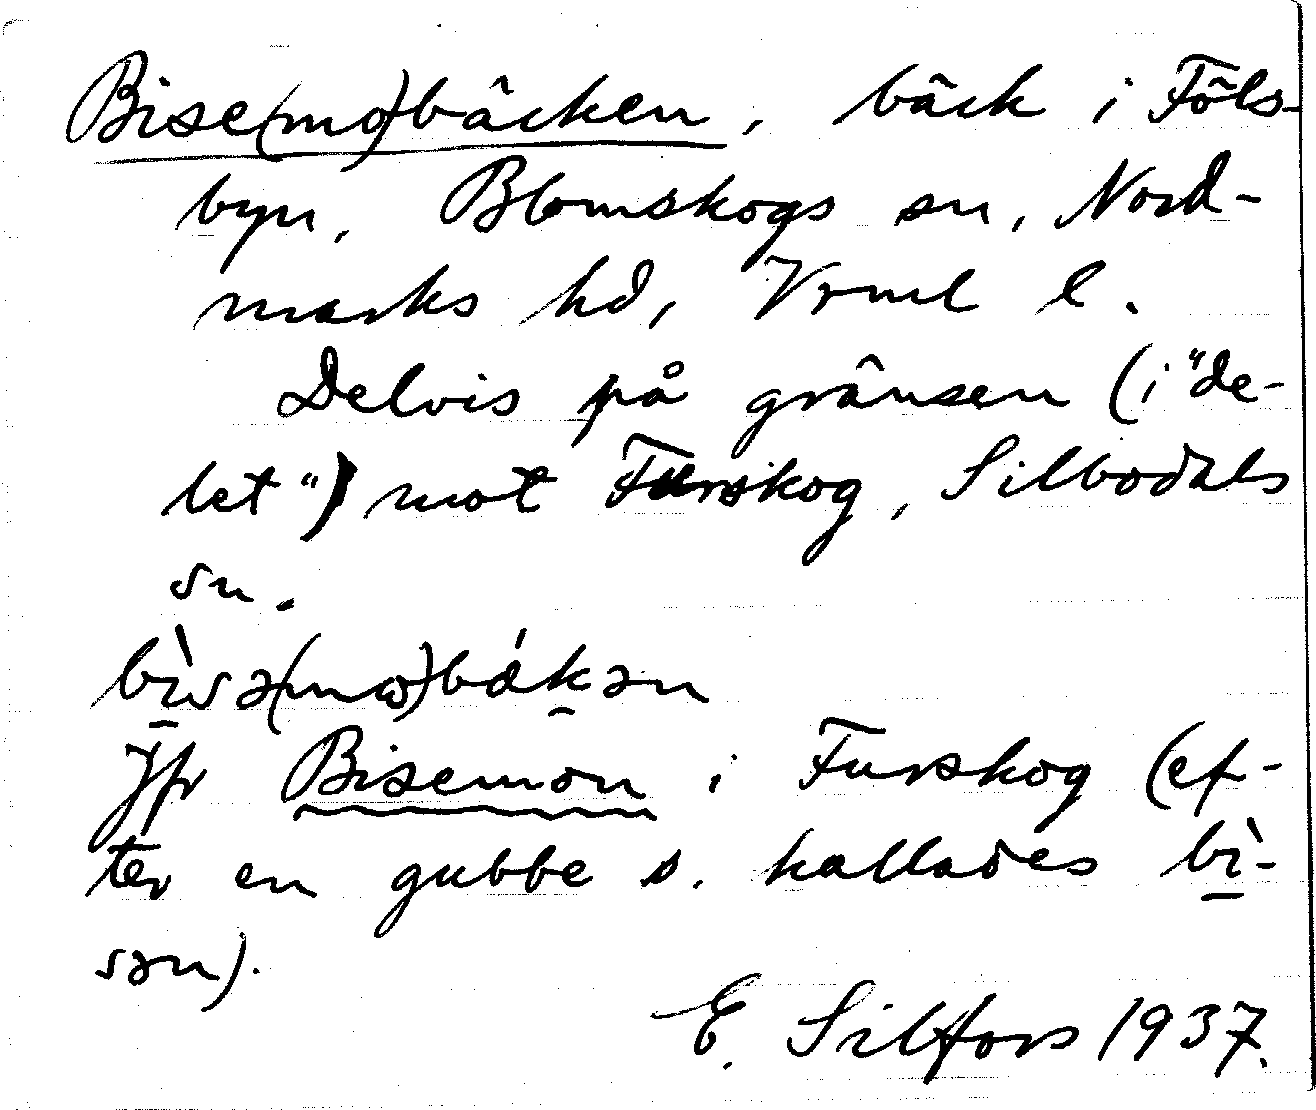 Bise(mo)bäcken, bäck i Föls-
byn, Blomskogs sn, Nord-
marks hd, Vrml l.
Delvis på gränsen (i "de-
let") mot Furskog, Silbodals
sn.
bi̠̇̀sə(mω)bákən
Jfr Bisemon i Furskog (ef-
ter en gubbe s. kallades bì̠-
sən).
E. Silfors 1937.